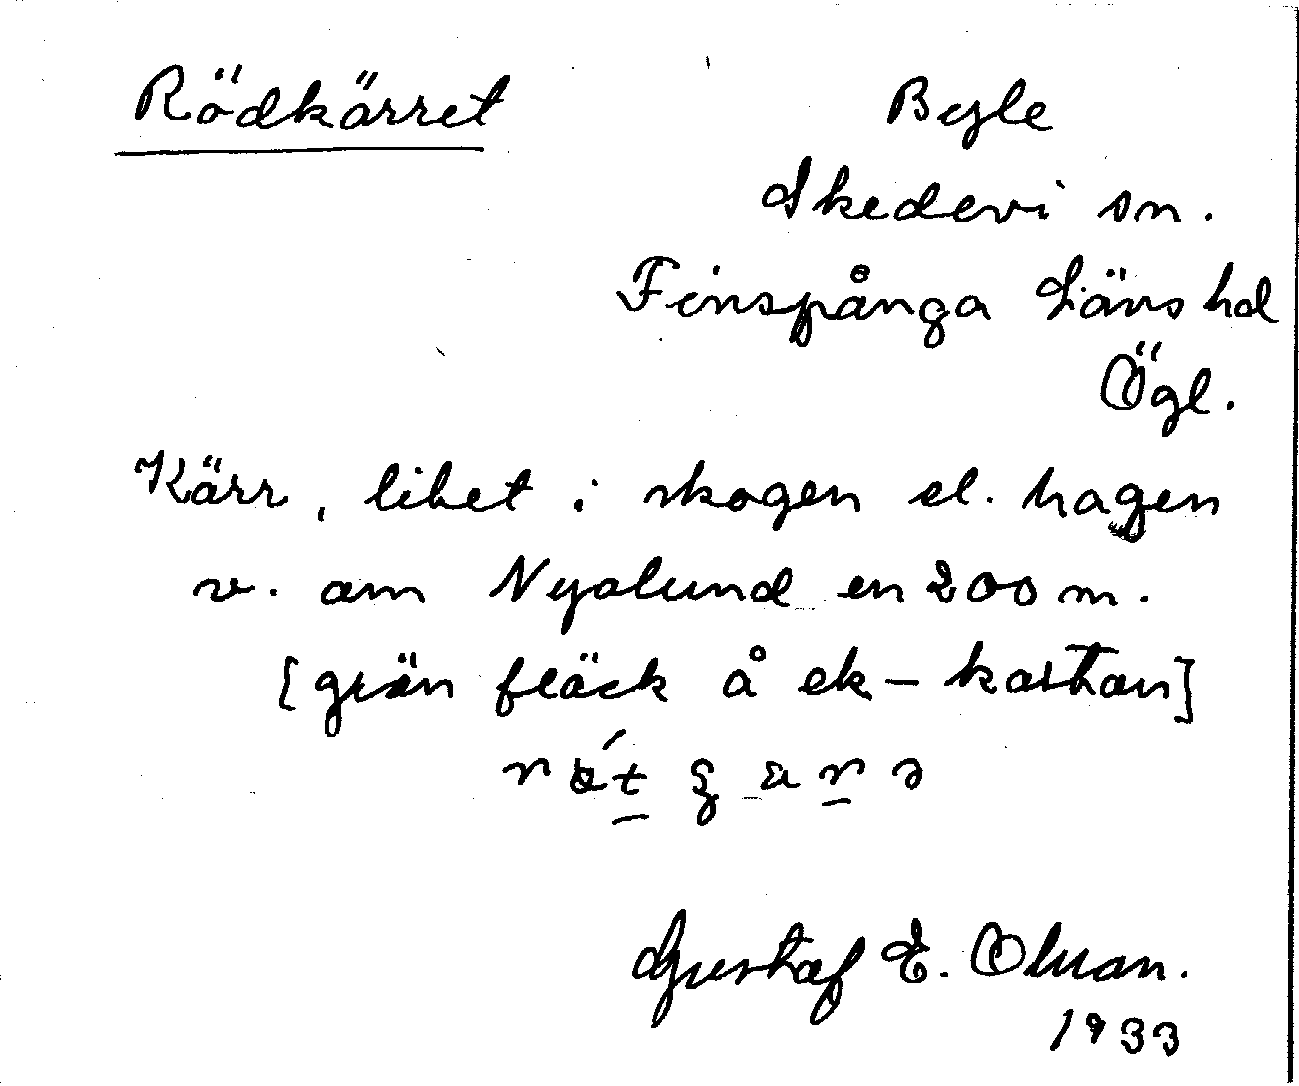 Rödkärret
Byle
Skedevi sn.
Finspånga Läns hd
Ögl.
Kärr, litet i skogen el. hagen
v. om Nyalund en 200 m.
[grön fläck å ek-kartan]
Gustaf E. Olsson.
1933